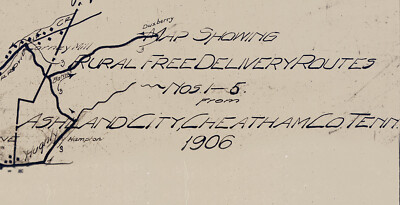 Dusberry
Map Showing
Rural Free Delivery Routes
Nos. 1-5.
from
Ashland City, Cheatham Co. Tenn.
1906
CR
Carney Mill
3
Hampton
3